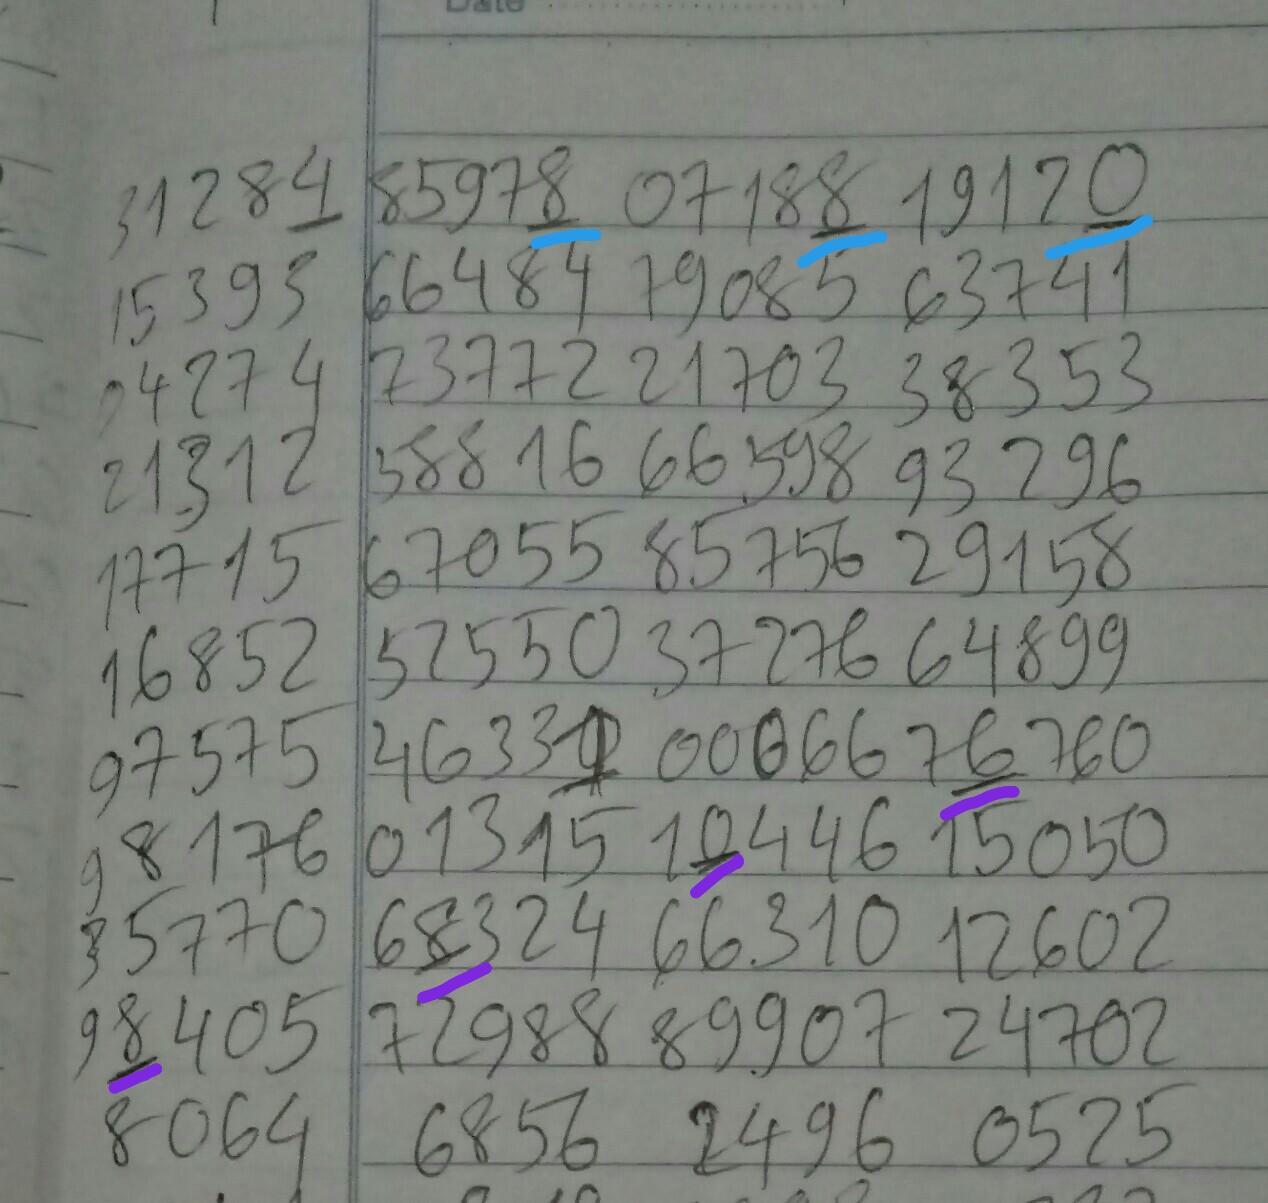 Date
31284 85978 07188 19120
15393 66484 79085 63741
04274 73772 21703 38353
21312 38816 66598 93296
17715 67055 85756 29158
16852 52550 37276 64899
97575 46331 00066 76760
98176 01315 10446 15050
35770 68324 66310 12602
98405 72988 89907 24702
8064 6856 2496 0525